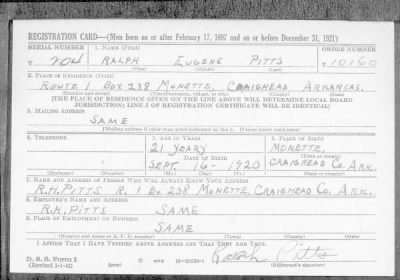 REGISTRATION CARD—(Men born on or after February 17, 1897 and on or before December 31, 1921)
SERIAL NUMBER 1. NAME (Print) ORDER NUMBER
T 204 RALPH EUGENE PITTS 10160
(First) (Middle) (Last)
2. PLACE OF RESIDENCE (Print)
ROUTE 1 BOX 238 MONETTE, CRAIGHEAD ARKANSAS.
(Number and street) (Town, township, village, or city) (County) (State)
[THE PLACE OF RESIDENCE GIVEN ON THE LINE ABOVE WILL DETERMINE LOCAL BOARD
JURISDICTION; LINE 2 OF REGISTRATION CERTIFICATE WILL BE IDENTICAL]
3. MAILING ADDRESS
SAME
[Mailing address if other than place indicated on line 2. If same insert word same]
4. TELEPHONE 5. AGE IN YEARS 6. PLACE OF BIRTH
21 YEARS MONETTE,
DATE OF BIRTH
SEPT. 16 1920 CRAIGHEAD CO. ARK.
(Mo.) (Day) (Yr.)
7. NAME AND ADDRESS OF PERSON WHO WILL ALWAYS KNOW YOUR ADDRESS
R.H. PITTS R. 1 BX 238 MONETTE, CRAIGHEAD CO. ARK.
8. EMPLOYER'S NAME AND ADDRESS
R.H. PITTS SAME
9. PLACE OF EMPLOYMENT OR BUSINESS
SAME
(Number and street or R. F. D. number) (Town) (County) (State)
I AFFIRM THAT I HAVE VERIFIED ABOVE ANSWERS AND THAT THEY ARE TRUE.
D. S. S. Form 1
(Revised 1-1-42) (over) Ralph Pitts
(Registrant's signature)